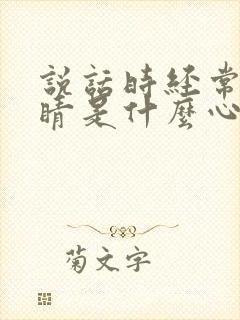 説話時経常
睛是什麼心
菊文字